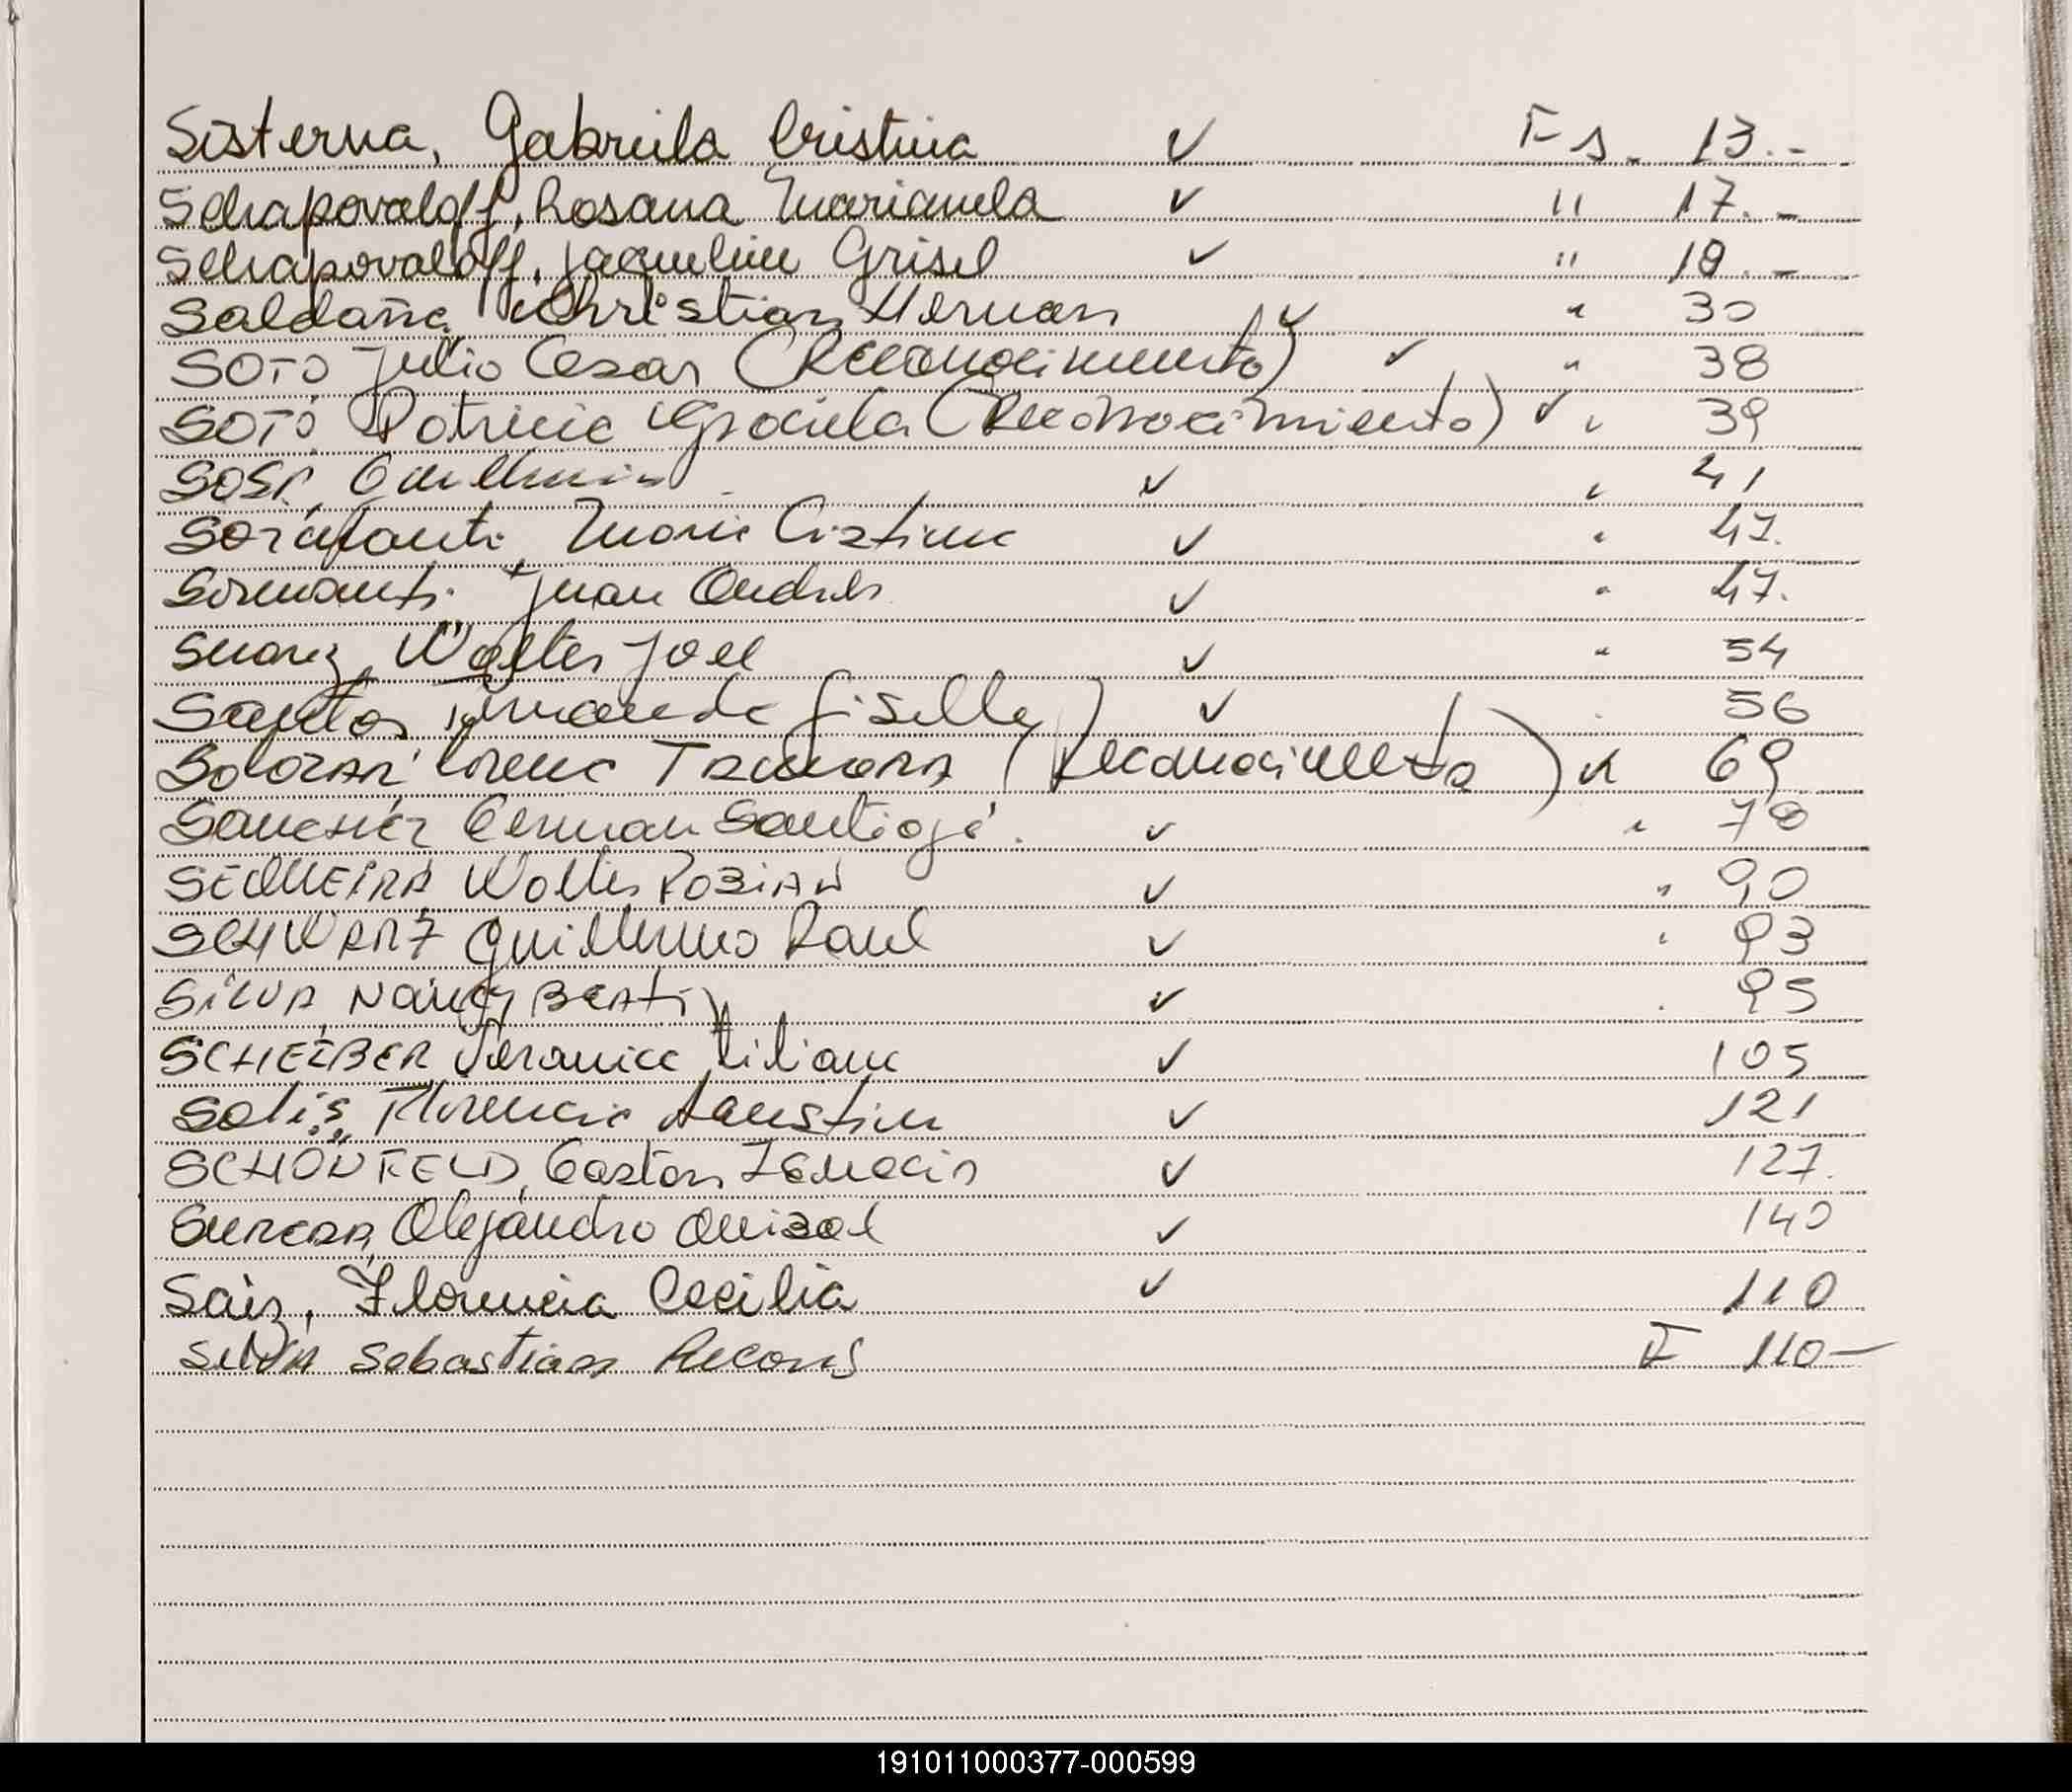 Sisterna, Gabriela Cristina ✓ Fs. 13.-
Schapovaloff, Rosana Marianela ✓ " 17.-
Schapovaloff, Jaqueline Grisel ✓ " 18.-
Saldaña Christian Hernan ✓ " 30
SOTO Julio Cesar (Reconocimiento) ✓ " 38
SOTO Patricia Graciela (Reconocimiento) ✓ " 39
SOSA, Guillermina ✓ " 41
Maria Cristina ✓ " 47.
Juan Andres ✓ " 47.
Suarez, Walter Joel ✓ " 54
Santos Fernanda Giselle ✓ 56
Lorena (Reconocimiento) " 69
Sanchez German Santiago. ✓ " 78
Walter Fabian ✓ " 90
SCHWARZ Guillermo Raul ✓ " 93
Silva, Nancy Beatriz ✓ 95
SCHEIBER Veronica Liliana ✓ 105
Solis, Florencia Agustina ✓ 121
SCHÖNFELD, Gaston Ignacio ✓ 127.
Alejandro Anibal ✓ 140
Saiz, Florencia Cecilia ✓ 110
Silva Sebastian Recons F 110-
191011000377-000599